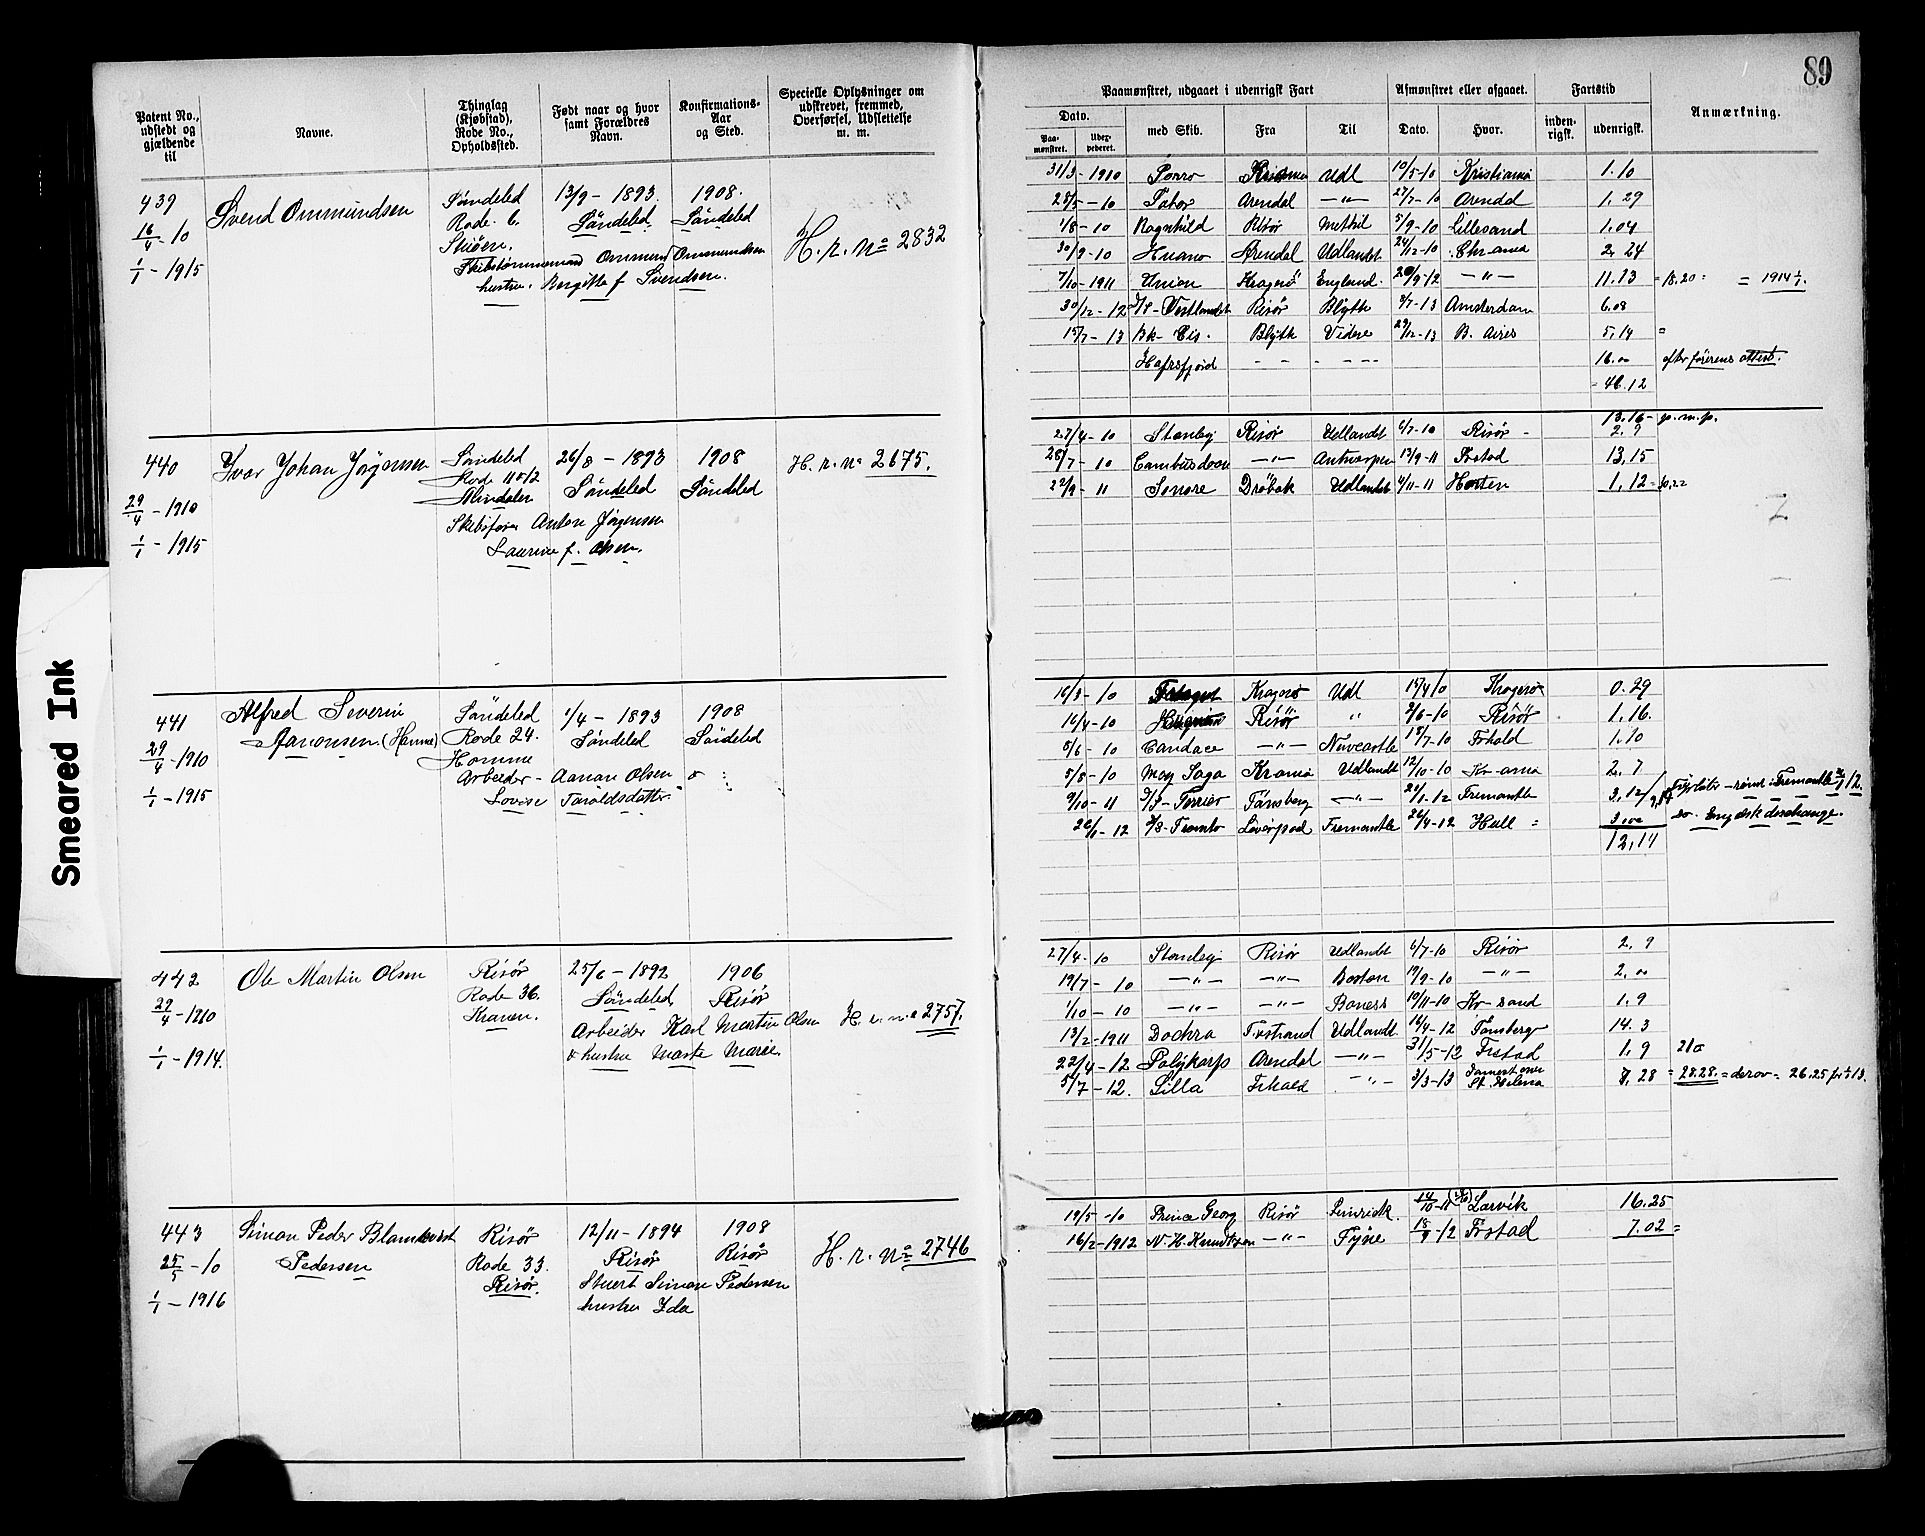 89
Patent No., udstedt og gjældende til
Navne.
Thinglag (Kjøbstad), Rode No., Opholdssted.
Født naar og hvor samt Forældres Navn.
Konfirmations-Aar og Sted.
Specielle Oplysninger om udskrevet, fremmed, Overførsel, Udslettelse m. m.
Paamønstret, udgaaet i udenrigsk Fart
Afmønstret eller afgaaet.
Fartstid
Anmærkning.
Dato.
Paa-mønstret.
med Skib.
Fra
Til
Dato.
Hvor.
inden-rigsk.
udenrigsk.
439
16/4 - 10
1/1 - 1915
Svend Ommundsen
Söndeled
Rode 6.
13/9 - 1893.
Söndeled.
1908.
Söndeled
H. r. No 2832
Skibstømmermand Ommund Ommundsen
hustru. Birgitte f Svendsen.
31/3 - 1910 Udl 10/5-10 Kristiania 1.10
28/5 - 10 Tabor Arendal — " — 27/7-10 Arendal 1.29
1/8 - 10 Ragnhild Risör Methil 5/9-10 Lillesand 1.04
30/9 - 10 Arendal Udlandet 24/12-10 Chr.ania 2.24
7/10 - 1911 Union Kragerö England. 20/9-12 — " — 11.13 = 18.20 = 1914 1/1.
30/12 - 12 Vestlandet Risör Blyth 8/7-13 Amsterdam 6.08
15/7 - 13 Bk- Eis. Blyth Videre 29/12-13 B. Aires 5.14 =
Hafrsfjord 16.00 efter förerens attest.
46.12
440
29/4 - 1910
1/1 - 1915
Ivar Johan Jörgensen
Söndeled
Rode 11 o 12
26/8 - 1893
Söndeled
1908
Söndeled
H. r. No 2675.
Skibsförer Anton Jörgensen
Laurine f. Olsen.
13.16 - p.m.p.
27/4 - 10 Stanley Risör Udlandet 6/7-10 Risör - 2.9
28/7 - 10 Cambusdoon — " — Antwerpen 13/9-11 Frstad 13.15
22/9 - 11 Sonore Dröbak Udlandet 4/11-11 Horten 1.12
441
29/4 - 1910
1/1 - 1915
Alfred Severin
Aanonsen (Homme)
Söndeled
Rode 24.
Homme
1/4 - 1893
Söndeled
1908
Söndeled
Arbeider - Aanon Olsen
Lovise Taraldsdatter
16/3 - 10 Kragerö Udl 15/4 10 Kragerö 0.29
16/4 - 10 Risör " 2/6-10 Risör 1.16.
5/6 - 10 Candace — " — Newcastle 15/7-10 Frhald 1.10
5/8 - 10 May Saga Kr.ania Udlandt 12/10-10 Kr-ania 2.7
9/10 - 11 Terrier Tönsberg — " — 24/1-12 Fremantle 3.12
26/1 - 12 Liverpool Fremantle 26/4-12 Hull = 3.00
12.14
Engelsk descharge.
442
29/4 - 1910
1/1 - 1914.
Ole Martin Olsen
Risör
Rode 36.
Kranen.
25/6 - 1892
Söndeled
1906
Risör
H. r. No 2757.
Arbeider Karl Martin Olsen
& hustru Marte Marie.
27/4 - 10 Stanley Risör Udlandet 6/7-10 Risör 2.9
19/7 - 10 — " — — " — Boston 19/9-10 — " — 2.00
1/10 - 10 — " — — " — Boness 10/11-10 Kr-sand 1.9
13/2 - 1911 Dochra Frstrand Udlandt. 16/4-12 Tönsberg 14.3
22/4 - 12 Polykarp Arendal — " — 31/5-12 Frstad 1.9
5/7 - 12. Lilla Frhald — " — 3/3-13 St. Helena 7.28 = 28.28. = derav = 26.25 før 1/1 13.
443
25/5 - 10
1/1 - 1916
Simon Peder Blamkvist
Pedersen
Risör
Rode 33.
Risör.
12/11 - 1894
Risör
1908
Risör
H. r. No 2746
Stuert Simon Pedersen
hustru Ida
19/5 - 10 Prince Georg Risör 14/10-11 Larvik 16.25
16/2 - 1912 N. H. Knudtzon — " — Tyne 18/9-12 Frstad 7.02 =
Smeared Ink